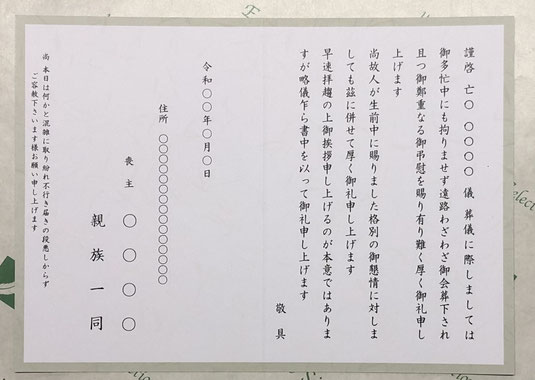 謹啓 亡〇 〇〇〇〇 儀 葬儀に際しましては
御多忙中にも拘りませず遠路わざわざ御会葬下され
且つ御鄭重なる御弔慰を賜り有り難く厚く御礼申し
上げます
尚故人が生前中に賜りました格別の御懇情に対しま
しても茲に併せて厚く御礼申し上げます
早速拝趨の上御挨拶申し上げるのが本意ではありま
すが略儀乍ら書中を以って御礼申し上げます
敬具
令和〇〇年〇月〇日
住所 〇〇〇〇〇〇〇〇〇〇〇〇〇
喪主 〇〇〇〇
親族一同
尚 本日は何かと混雑に取り紛れ不行き届きの段悪しからず
ご容赦下さいます様お願い申し上げます